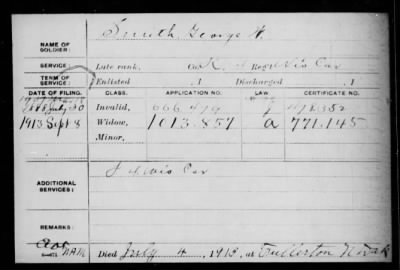 Smith, George W.
NAME OF SOLDIER:
SERVICE: Late rank, Co. K, 4 Reg't Wis Cav
TERM OF SERVICE: Enlisted , 1 Discharged , 1
DATE OF FILING. CLASS. APPLICATION NO. LAW CERTIFICATE NO.
1888 July 30 Invalid, 666.479 478352
1913 Sept 8 Widow, 1013.857 a 771.145
Minor,
ADDITIONAL SERVICES: Wis Cav
REMARKS:
Died July 4, 1913, at Fullerton Nebr